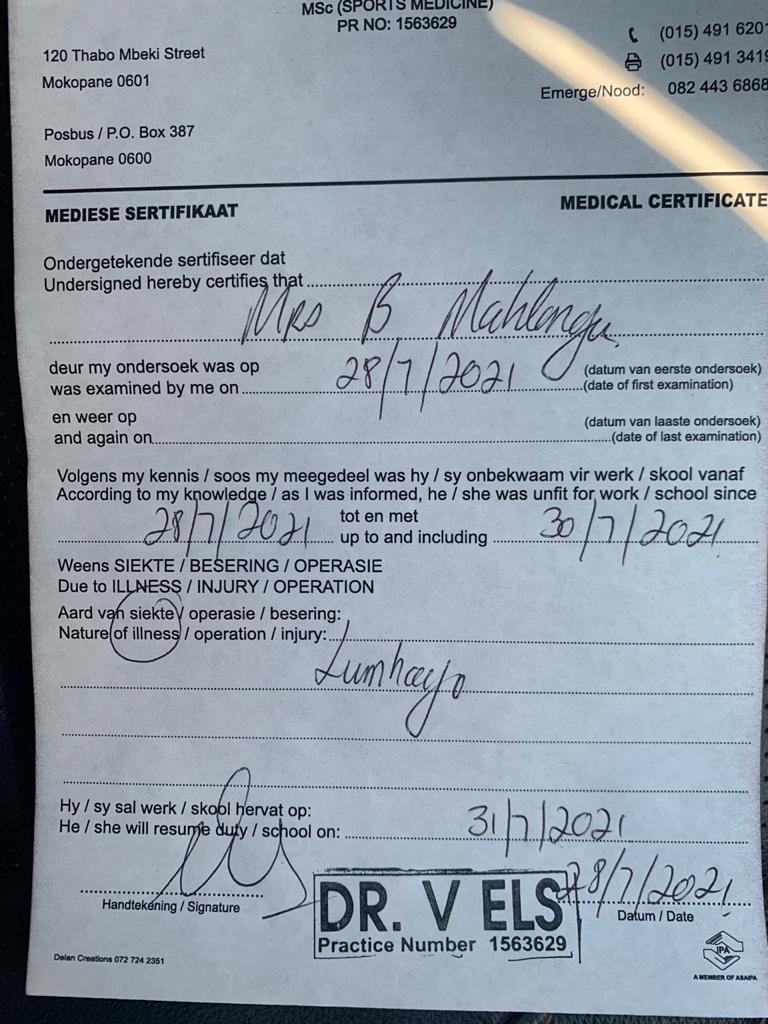 MSc (SPORTS MEDICINE)
PR NO: 1563629
120 Thabo Mbeki Street
Mokopane 0601
(015) 491 6201
(015) 491 3419
Emerge/Nood: 082 443 6868
Posbus / P.O. Box 387
Mokopane 0600
MEDIESE SERTIFIKAAT
MEDICAL CERTIFICATE
Ondergetekende sertifiseer dat
Undersigned hereby certifies that
Mrs B Mahlangu
deur my ondersoek was op
was examined by me on 28/7/2021
(datum van eerste ondersoek)
(date of first examination)
en weer op
and again on
(datum van laaste ondersoek)
(date of last examination)
Volgens my kennis / soos my meegedeel was hy / sy onbekwaam vir werk / skool vanaf
According to my knowledge / as I was informed, he / she was unfit for work / school since
28/7/2021 tot en met
up to and including 30/7/2021
Weens SIEKTE / BESERING / OPERASIE
Due to ILLNESS / INJURY / OPERATION
Aard van siekte / operasie / besering:
Nature of illness / operation / injury:
Hy / sy sal werk / skool hervat op:
He / she will resume duty / school on: 31/7/2021
28/7/2021
Handtekening / Signature
DR. V ELS
Practice Number 1563629
Datum / Date
Delan Creations 072 724 2351
IPA
A MEMBER OF ASAIPA